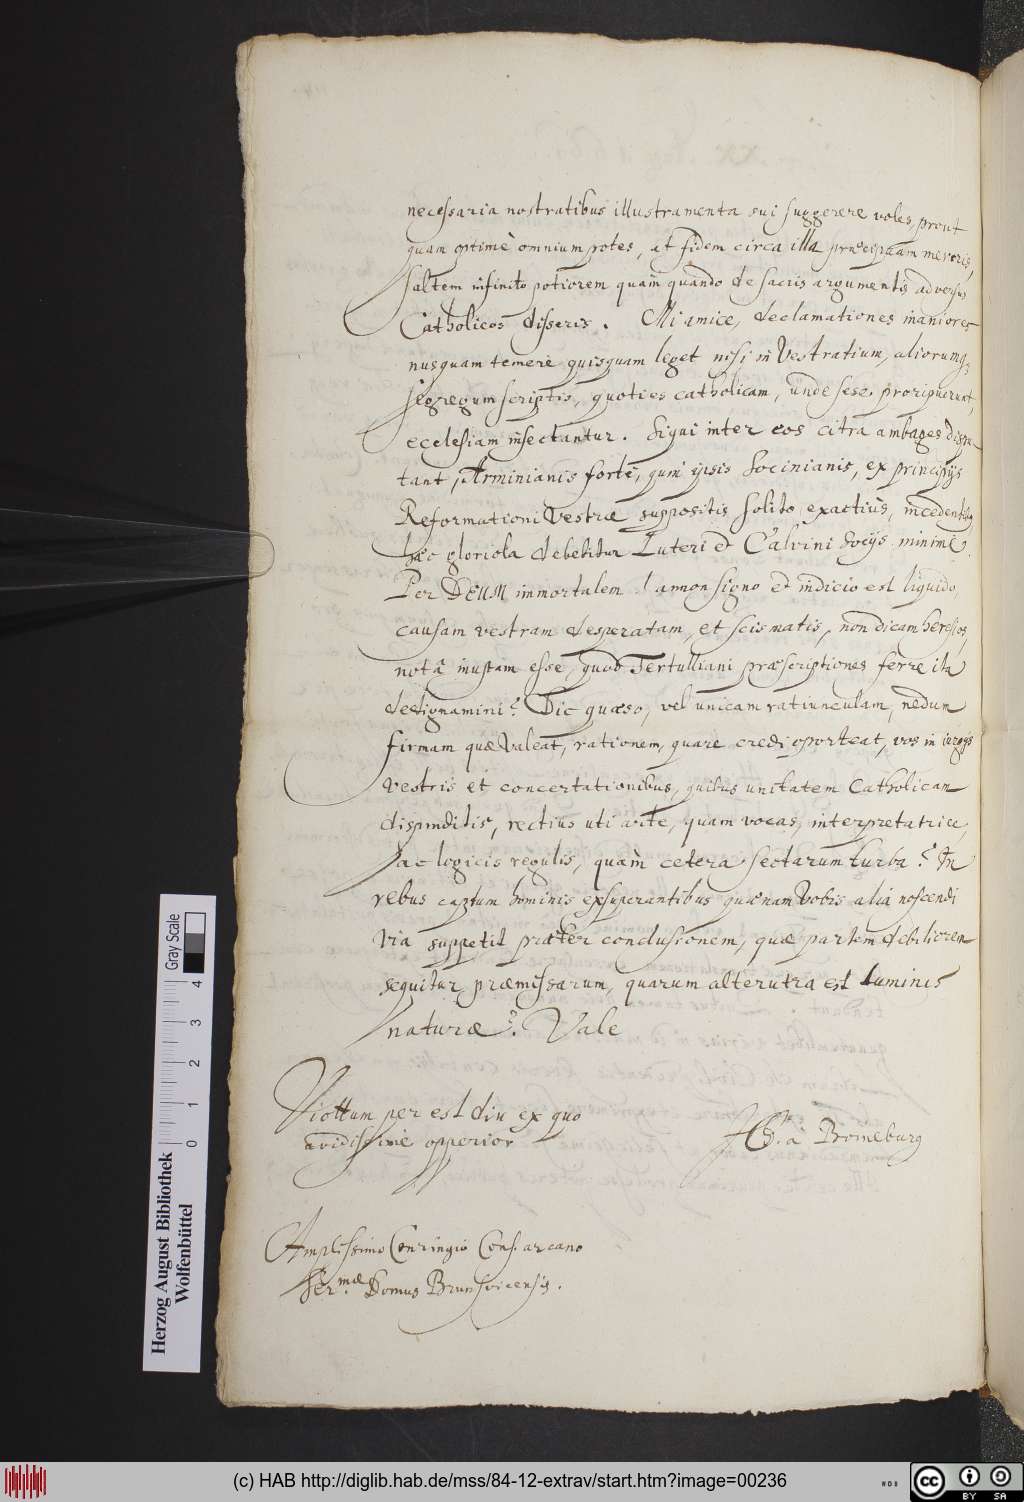 necessaria nostratibus illustramenta sui suggerere voles, prout
quam optimè omnium potes, at fidem circa illa præcipuam mereris,
saltem infinito potiorem quàm quando de sacris argumentis adversus
Catholicos disseris. Mi amice, declamationes inaniores
nusquam temere quisquam leget nisi in Vestratium, aliorumq;
segregum scriptis, quoties catholicam, unde sese proripuerunt,
ecclesiam insectantur. Siqui inter eos citra ambages dispu-
tant, Arminianis fortè, qum ipsis Socinianis, ex principijs
Reformationi Vestræ suppositis solito exactiùs, incedentibus
hæc gloriola debebitur Luteri et Calvini Socijs minimè.
Per DEUM immortalem! annon signo et indicio est liquido,
causam vestram desperatam, et scismatis, non dicam hereseos,
notâ inustam esse, quod Tertulliani præscriptiones ferre ita
dedignamini? Dic quæso, vel unicam ratiunculam, nedum
firmam quæ valeat, rationem, quare credi oporteat, vos in iurgijs
vestris et concertationibus, quibus unitatem Catholicam
discinditis, rectius uti arte, quam vocas, interpretatrice,
ac logicis regulis, quàm cetera sectarum turba? In
rebus captum hominis exsuperantibus quænam Vobis alia noscendi
via suppetit præter conclusionem, quæ partem debiliorem
sequitur præmissarum, quarum alterutra est luminis
naturæ? Vale
Viottum per est diu ex quo
avidissimè opperior
Ch. à Boineburg
Amplissimo Conringio Cons. arcano
Ser.mæ Domus Brunsvicensis.
Gray Scale
0 1 2 3 4
Herzog August Bibliothek
Wolfenbüttel
(c) HAB http://diglib.hab.de/mss/84-12-extrav/start.htm?image=00236
cc BY SA